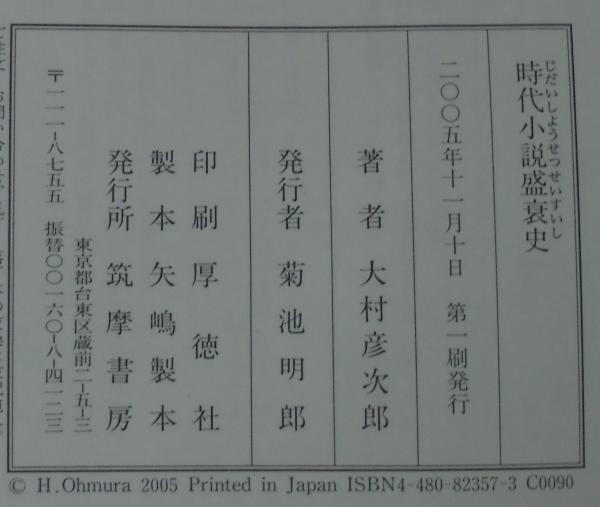 時代小説盛衰史
じだいしようせつせいすいし
二〇〇五年十一月十日 第一刷発行
著者 大村彦次郎
発行者 菊池明郎
印刷 厚徳社
製本 矢嶋製本
発行所 筑摩書房
東京都台東区蔵前二-五-三
〒一一一-八七五五 振替〇〇一六〇-八-四一二三
© H.Ohmura 2005 Printed in Japan ISBN4-480-82357-3 C0090